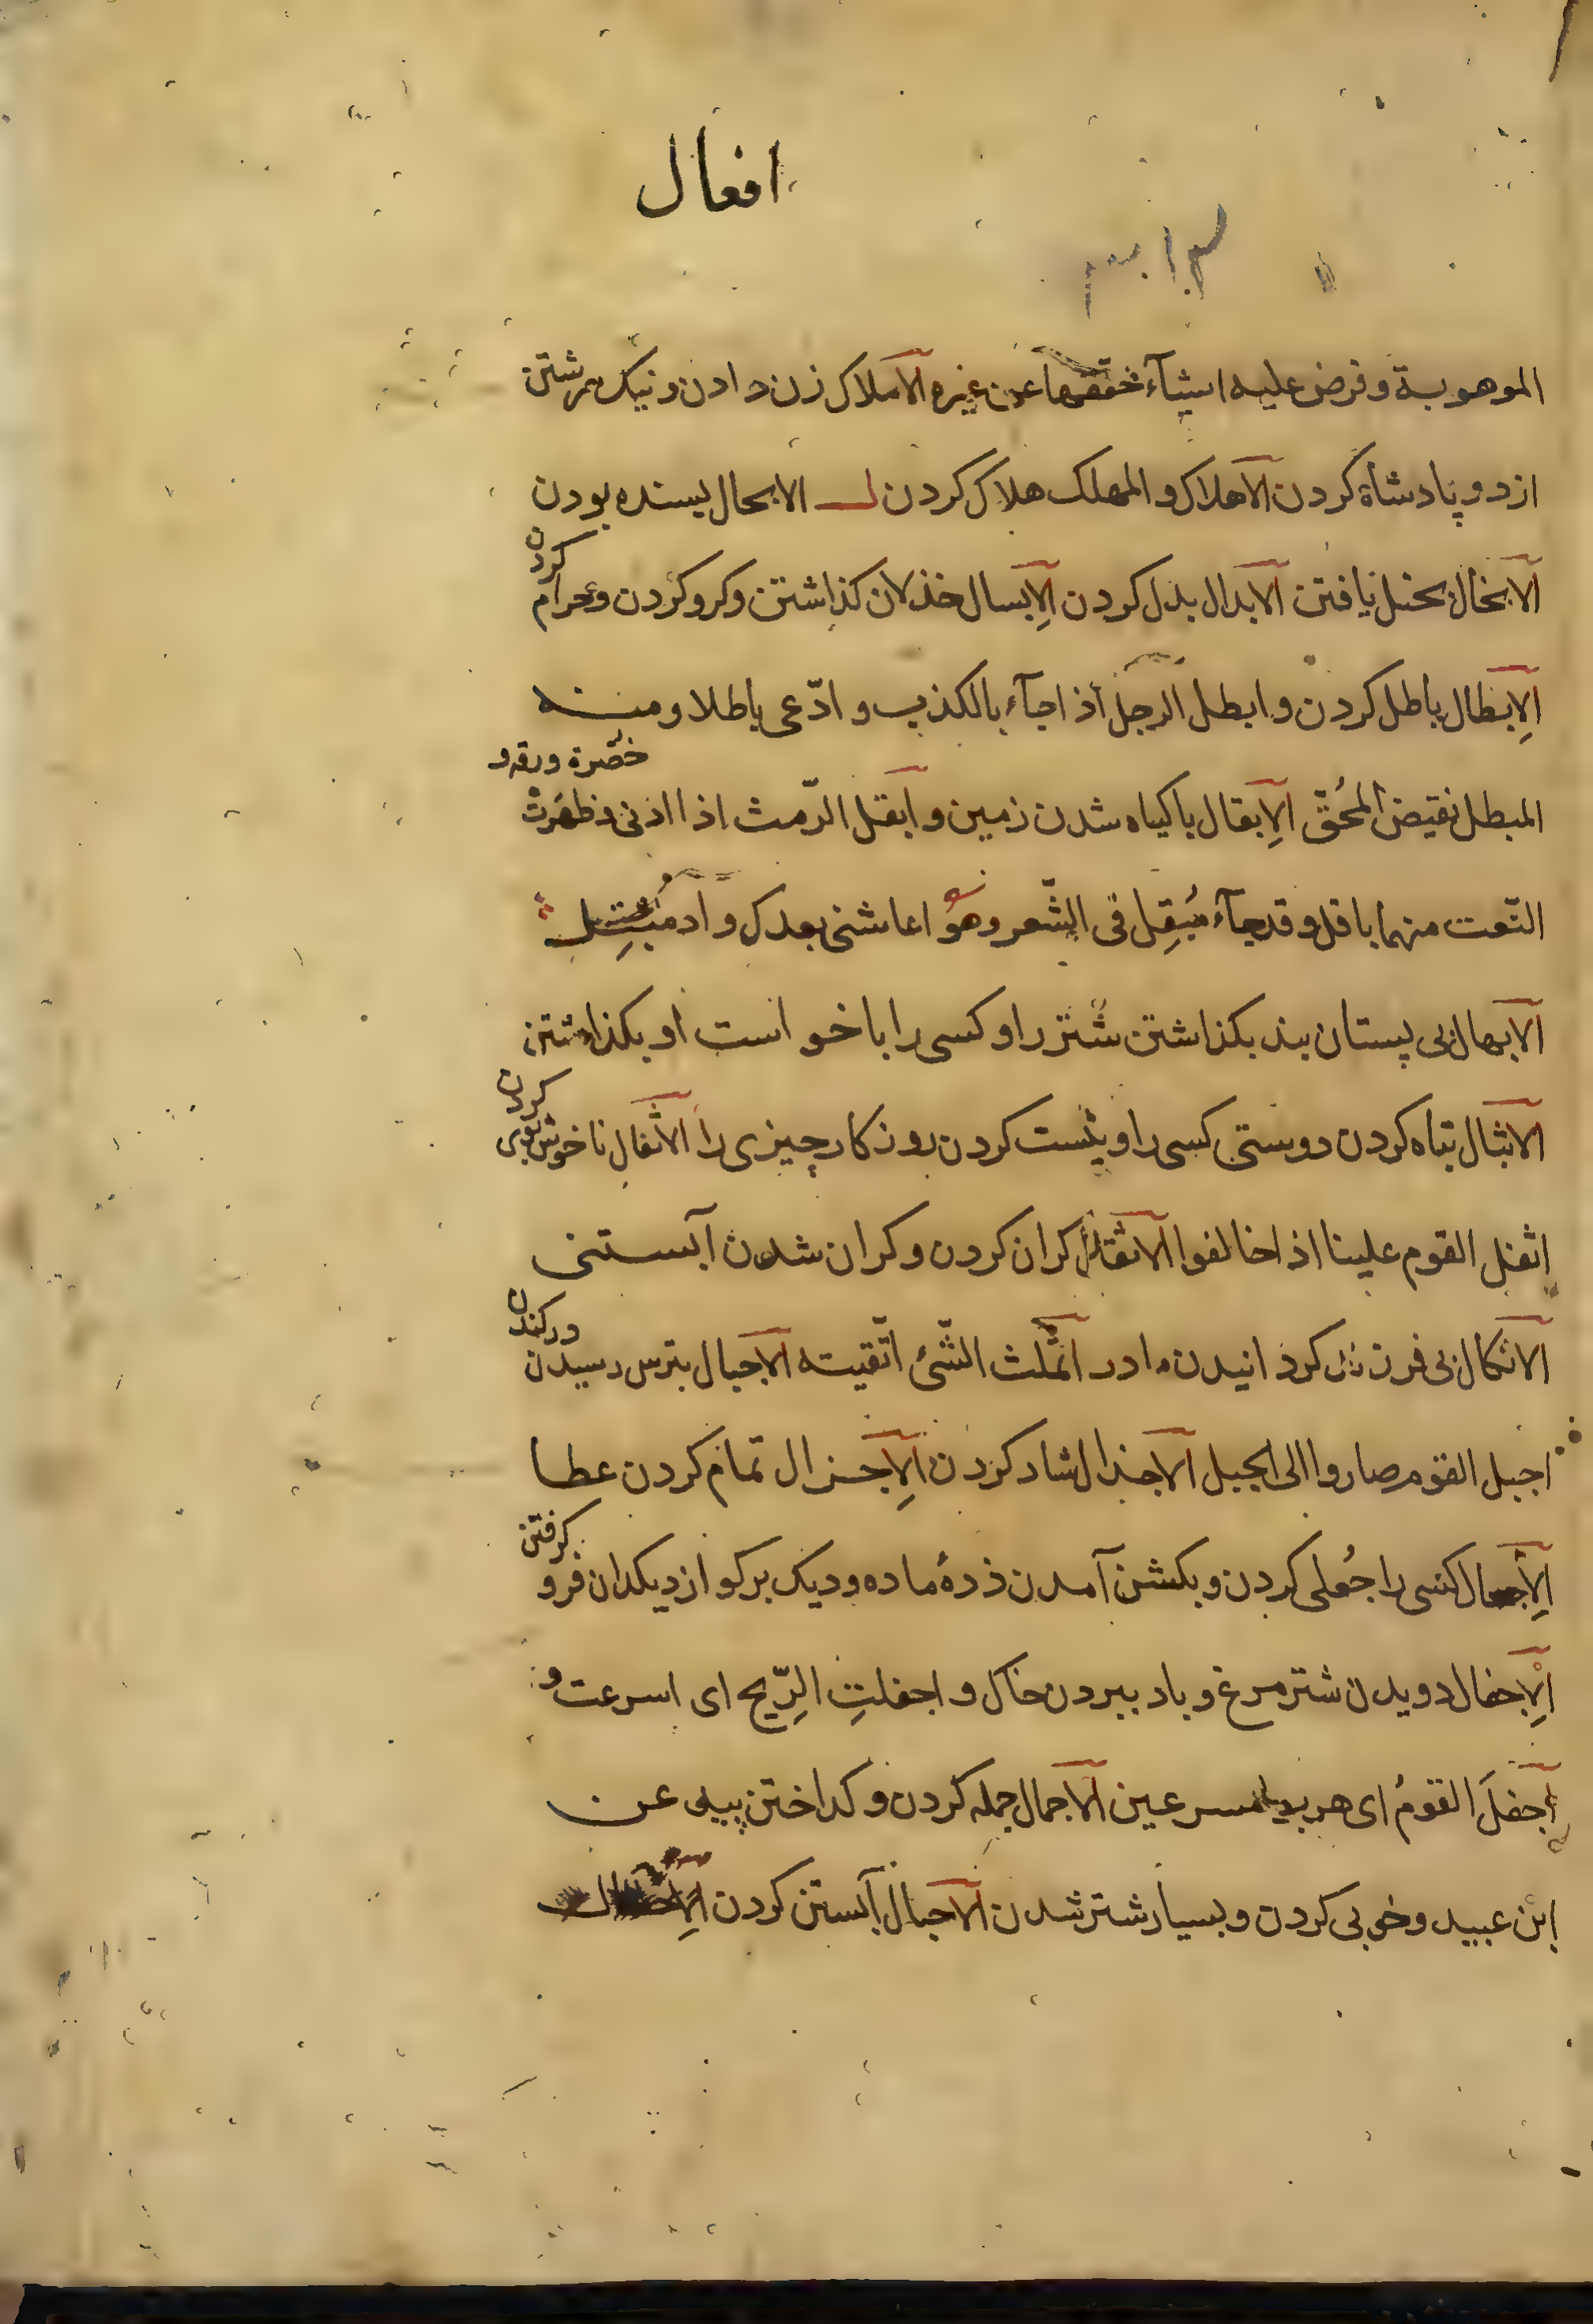 افعال
الموهوبة و فرض عليه اشيآء خفقها عن غيره الاملاک زن دادن و نيک سرشتن
ازد و پادشاة کردن الاهلاک و المهلک هلاک کردن ل الابحال بسنده بودن
الابخال بخيل يافتن الابدال بدل کردن الِابسال خذلان کذاشتن و کرو کردن و حرام کردن
الِابطال باطل کردن و ابطل الرجل اذا جآء بالکذب و ادّعی باطلا و منه
المبطل نقيض المُحقّ الِابقال با کياه شدن زمين و ابقل الرّمث اذا ادنی و ظهَرتْ خضرة ورقه و
النّعت منهما باقل و قد جآء مُبقِل فی الشّعر و هُو اعاشنی بعدک واد مبقِل
الابهال بی پستان بند بکذاشتن شتر را و کسی را با خواست او بکذاشتن
الابتال تباه کردن دوستی کسی را و پست کردن روزکار چيزی را الاثفال ناخوش بوی کردن
اثفل القوم علينا اذا خالفوا الاثقال کران کردن و کران شدن آبستنی
الاثکال بی فرزند کردانيدن مادر اثملت الشّئ اتّقيته الاجبال بترس رسيدن در کندن
اجبل القوم صاروا الی الجبل الاجذال شاد کردن الِاجزال تمام کردن عطا
الِاجعال کسی را جُعلی کردن و بکشن آمدن ددهٔ ماده و ديک برکو از ديکدان فرو کرفتن
الِاجفال دويدن شترمرغ و باد ببردن خاک و اجفلتِ الرِّيح ای اسرعت و
اجفلَ القومُ ای هربوا مسرعين الاجمال جمله کردن و کداختن پيه عن
ابن عبيد و خوبی کردن و بسيار شتر شدن الاحبال آبستن کردن